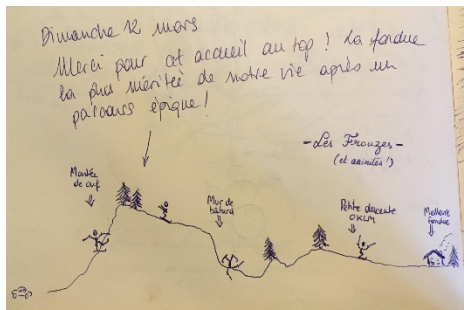 Dimanche 12 mars
Merci pour cet accueil au top ! La fondue
la plus méritée de notre vie après un
parcours épique !
- Les Frouzes -
(et associés !)
Montée
de ouf
Mur de
bâtard
Petite descente
OKLM
Meilleure
fondue